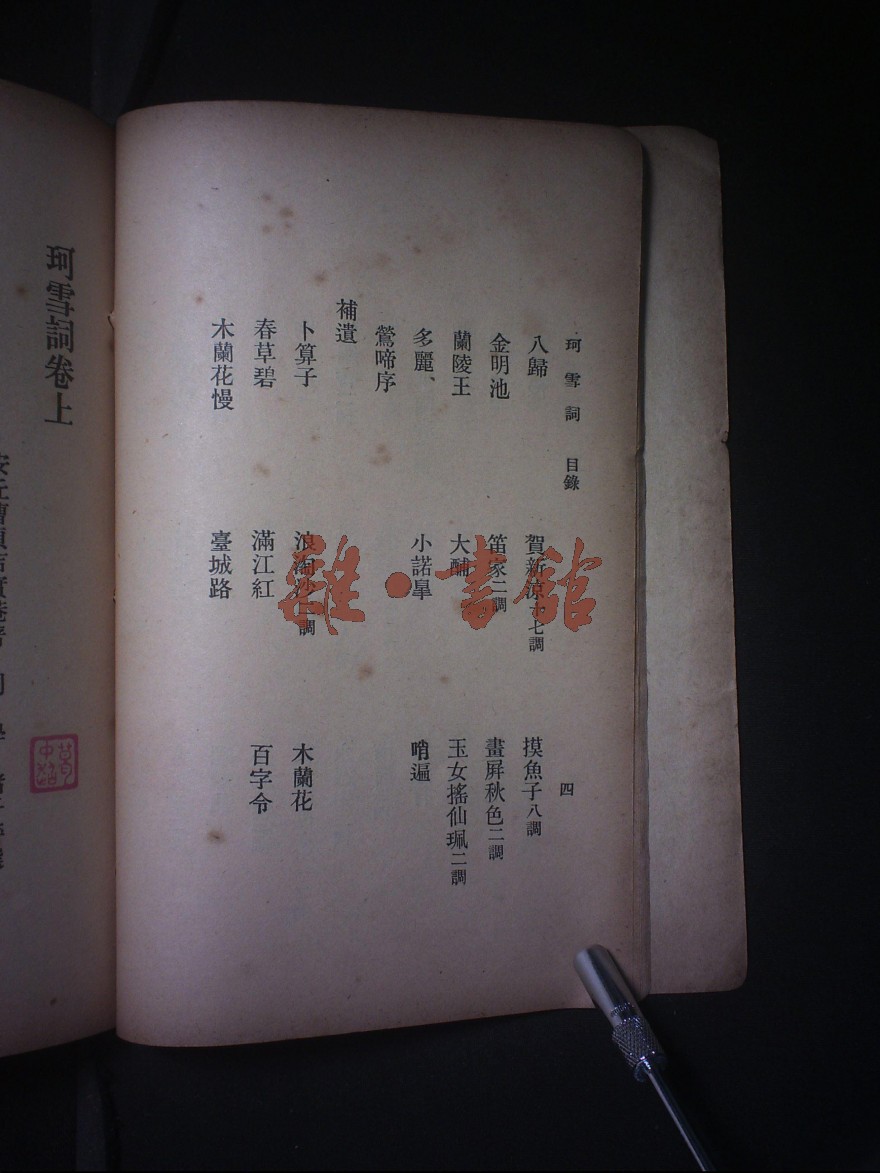 珂雪詞 目錄 四
八歸 賀新涼十七調 摸魚子八調
金明池 笛家二調 畫屏秋色二調
蘭陵王 大酺 玉女搖仙珮二調
多麗、 小諾皐 哨遍
鶯啼序
補遺
卜算子 浪淘沙二調 木蘭花
春草碧 滿江紅 百字令
木蘭花慢 臺城路
珂雪詞卷上
雜·書館